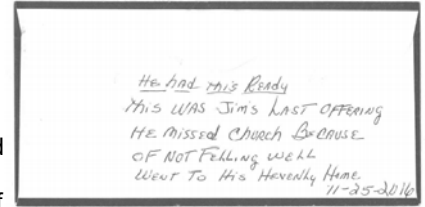 He had This Ready
This was Jim's Last offering
He missed Church Because
of Not Felling well
went To His Hevenly Home
11-25-2016
d
f